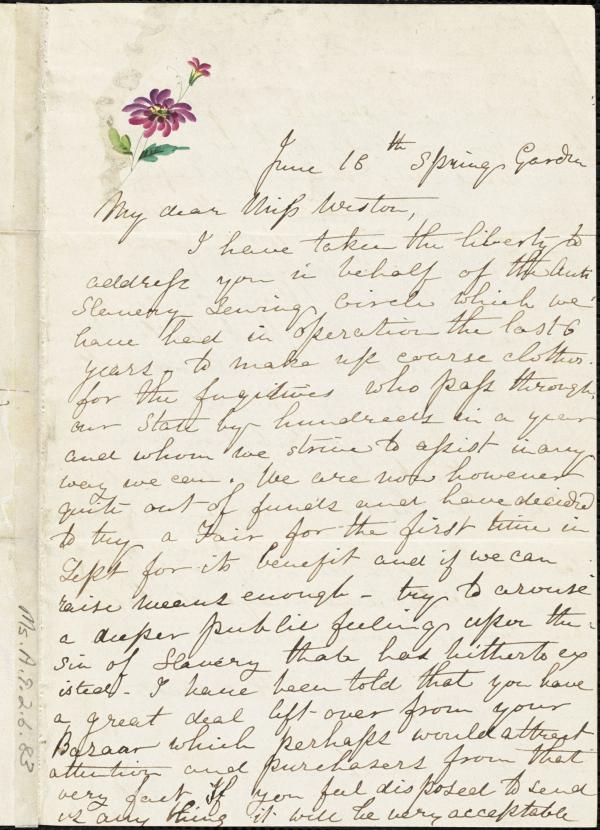 June 16th Spring Garden
My dear Miss Weston,
I have taken the liberty to
address you in behalf of the Anti
Slavery Sewing Circle which we
have had in operation the last 6
years, to make up coarse clothes
for the fugitives who pass through
our State by hundreds in a year
and whom we strive to assist in any
way we can. We are now however
quite out of funds and have decided
to try a Fair for the first time in
Sept for its benefit and if we can
raise means enough - try to arouse
a deeper public feeling upon the
sin of Slavery than has hitherto ex
isted - I have been told that you have
a great deal left over from your
Bazaar which perhaps would attract
attention and purchasers from that
very fact If you feel disposed to send
us any thing it will be very acceptable
Ms.A.9.2.6.83